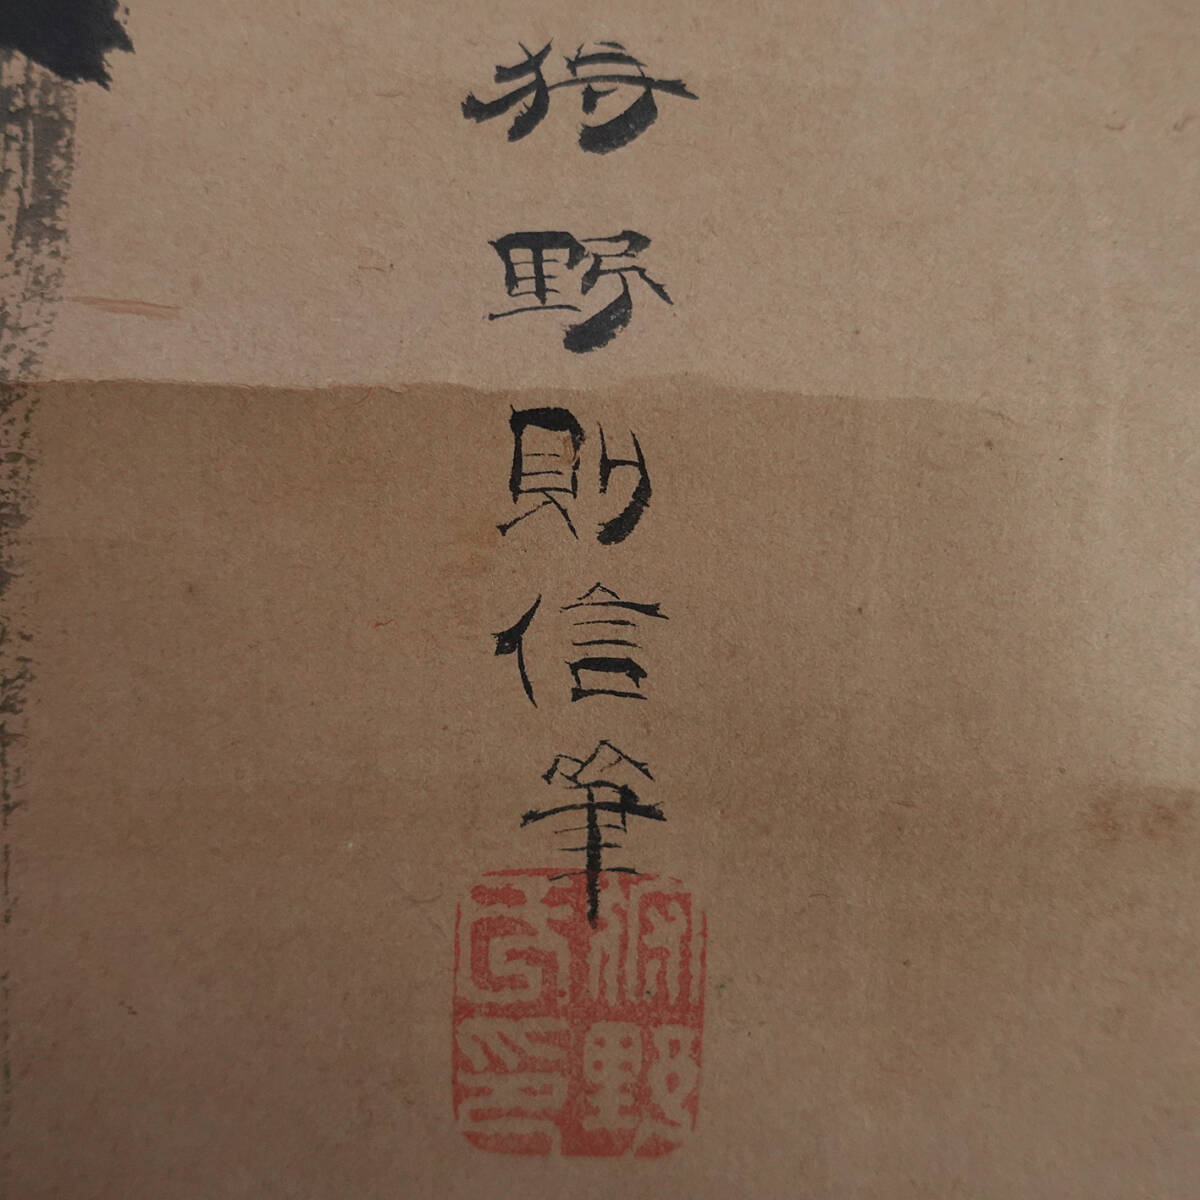 狩野則信筆